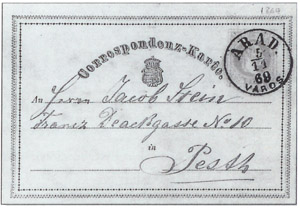 Correspondenz-Karte.
ARAD
5
11
69
VÁROS
An Herrn Jacob Stein
Franz Deackgasse No 10
in
Pesth